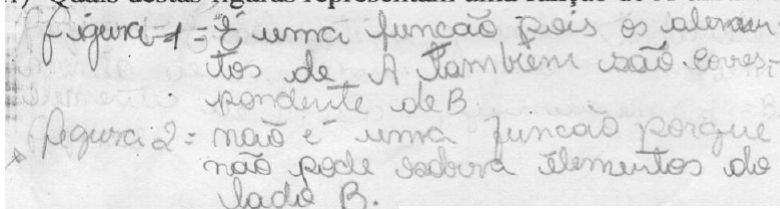 Figura-1 = É uma funcaõ pois os elemen-
tos de A também saõ corres-
pondente de B
figura 2 = naõ é uma funcaõ porque
naõ pode sobrra elementos do
lado B.